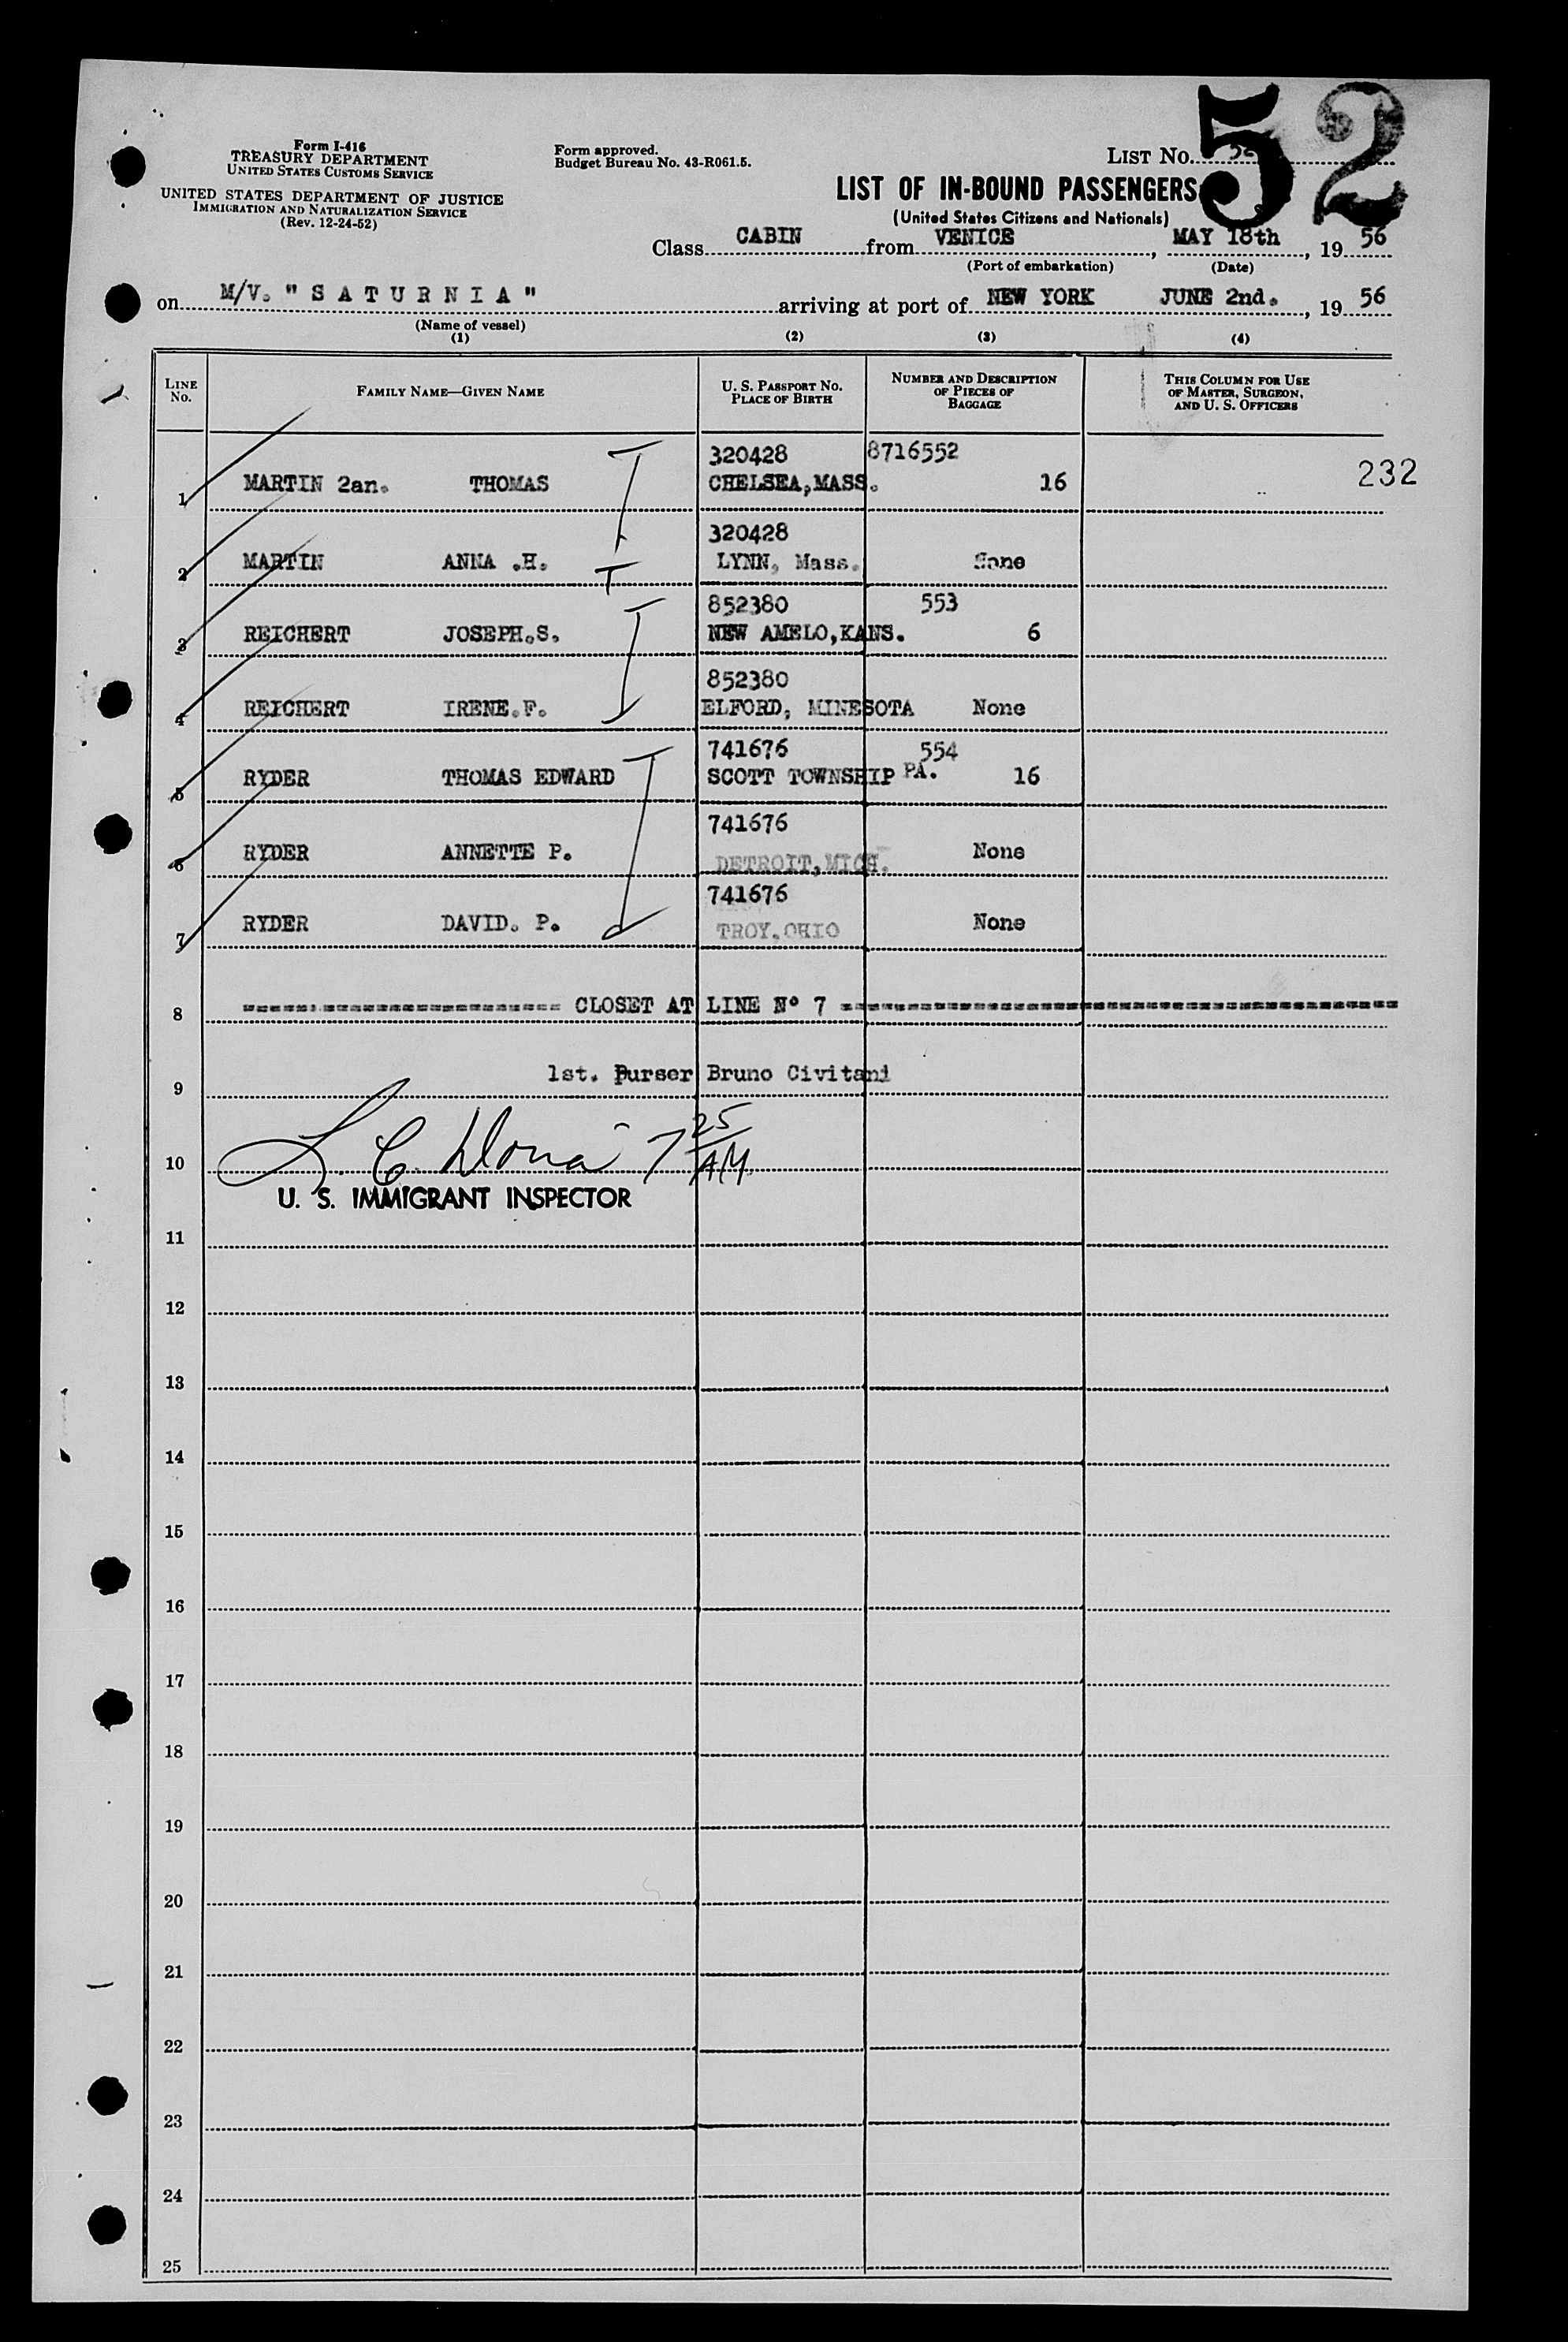 52
Form I-416
TREASURY DEPARTMENT
UNITED STATES CUSTOMS SERVICE
UNITED STATES DEPARTMENT OF JUSTICE
IMMIGRATION AND NATURALIZATION SERVICE
(Rev. 12-24-52)
Form approved.
Budget Bureau No. 43-R061.5.
LIST No.
LIST OF IN-BOUND PASSENGERS
(United States Citizens and Nationals)
Class CABIN from VENICE, MAY 18th, 19 56
(Port of embarkation) (Date)
on M/V. "S A T U R N I A" arriving at port of NEW YORK JUNE 2nd., 19 56
(Name of vessel)
(1) (2) (3) (4)
LINE No. FAMILY NAME—GIVEN NAME U. S. PASSPORT No. PLACE OF BIRTH NUMBER AND DESCRIPTION OF PIECES OF BAGGAGE THIS COLUMN FOR USE OF MASTER, SURGEON, AND U. S. OFFICERS
320428 8716552
1 MARTIN 2an. THOMAS CHELSEA,MASS. 16 232
320428
2 MARTIN ANNA .H. LYNN, Mass. None
852380 553
3 REICHERT JOSEPH.S. NEW AMELO,KANS. 6
852380
4 REICHERT IRENE.F. ELFORD, MINESOTA None
741676 554
5 RYDER THOMAS EDWARD SCOTT TOWNSHIP PA. 16
741676
6 RYDER ANNETTE P. DETROIT,MICH. None
741676
7 RYDER DAVID. P. TROY,OHIO None
8 CLOSET AT LINE Nº 7
9 1st. Purser Bruno Civitani
10 L. C. 7 25 AM.
U. S. IMMIGRANT INSPECTOR
11
12
13
14
15
16
17
18
19
20
21
22
23
24
25